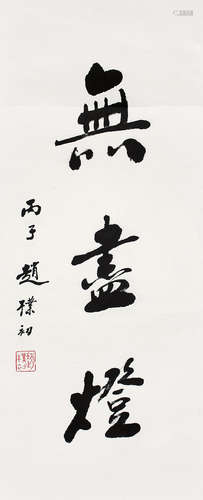 無盡燈
丙子 趙樸初